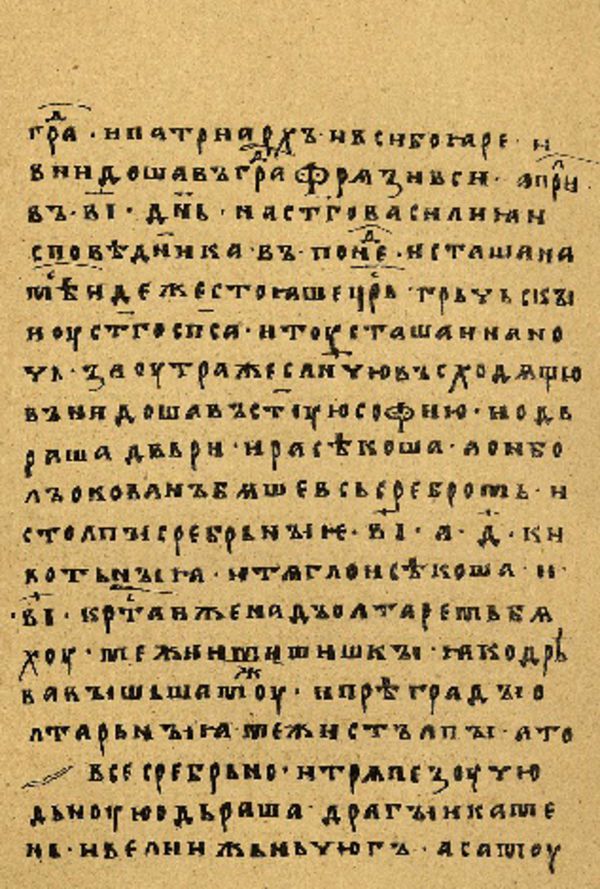 гра̑д · и патриархъ · и вси боꙗре · и
внидоша въ гра̑д фрѧзи вси · април̑
въ · в҃і · дн҃ь · на ст҃го василиꙗ и
споведника · въ · поне̑д · и сташа на
мѣи де же стоꙗше цр҃ь · грьчьскꙑ
и оу ст҃го сп҃са · и ту сташа и на но
чь · заоутра же сл҃нчю въсходѧщю
вънидоша въ ст҃ую софию · и одь
раша двьри · и расѣкоша · а онбо
лъ окованъ бѧше всь сребромь · и
столпꙑ сребрьнꙑѥ · в҃і · а · д҃ · ки
котьнꙑꙗ · и тѧгло исѣкоша · и ·
в҃і · крс҃та иже надъ олтаремь бѧ
хоу · межи ими шишкꙑ · ꙗко дрѣ
ва вꙑшьша моуж · и прѣградꙑ о
лтарьнꙑꙗ межи стълпꙑ · а то
все сребрьно · и трѧпезоу чю
дьноую одьраша · драгꙑи каме
нь · и велии жьньчюгъ · а самоу